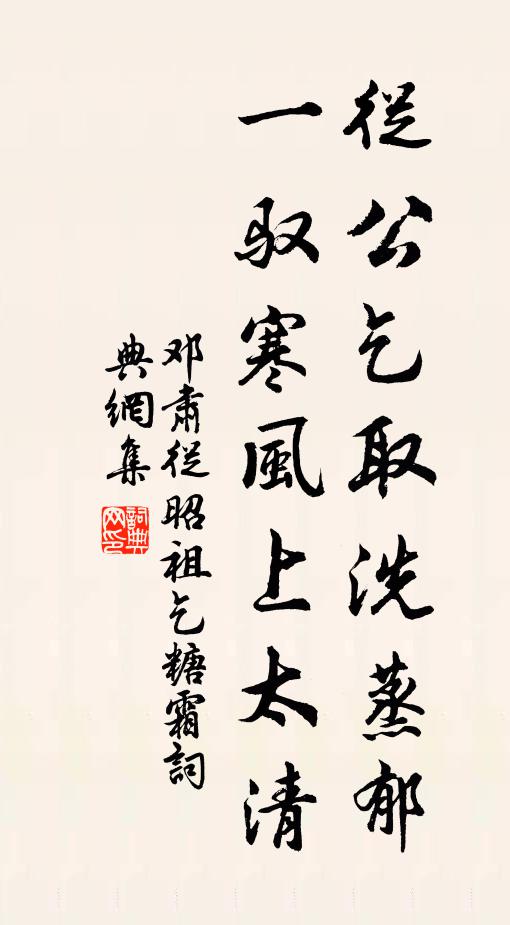 從公乞取洗蒸郁
一驭寒風上太清
邓肅從昭祖乞糖霜詞
典網集
詞典
网印